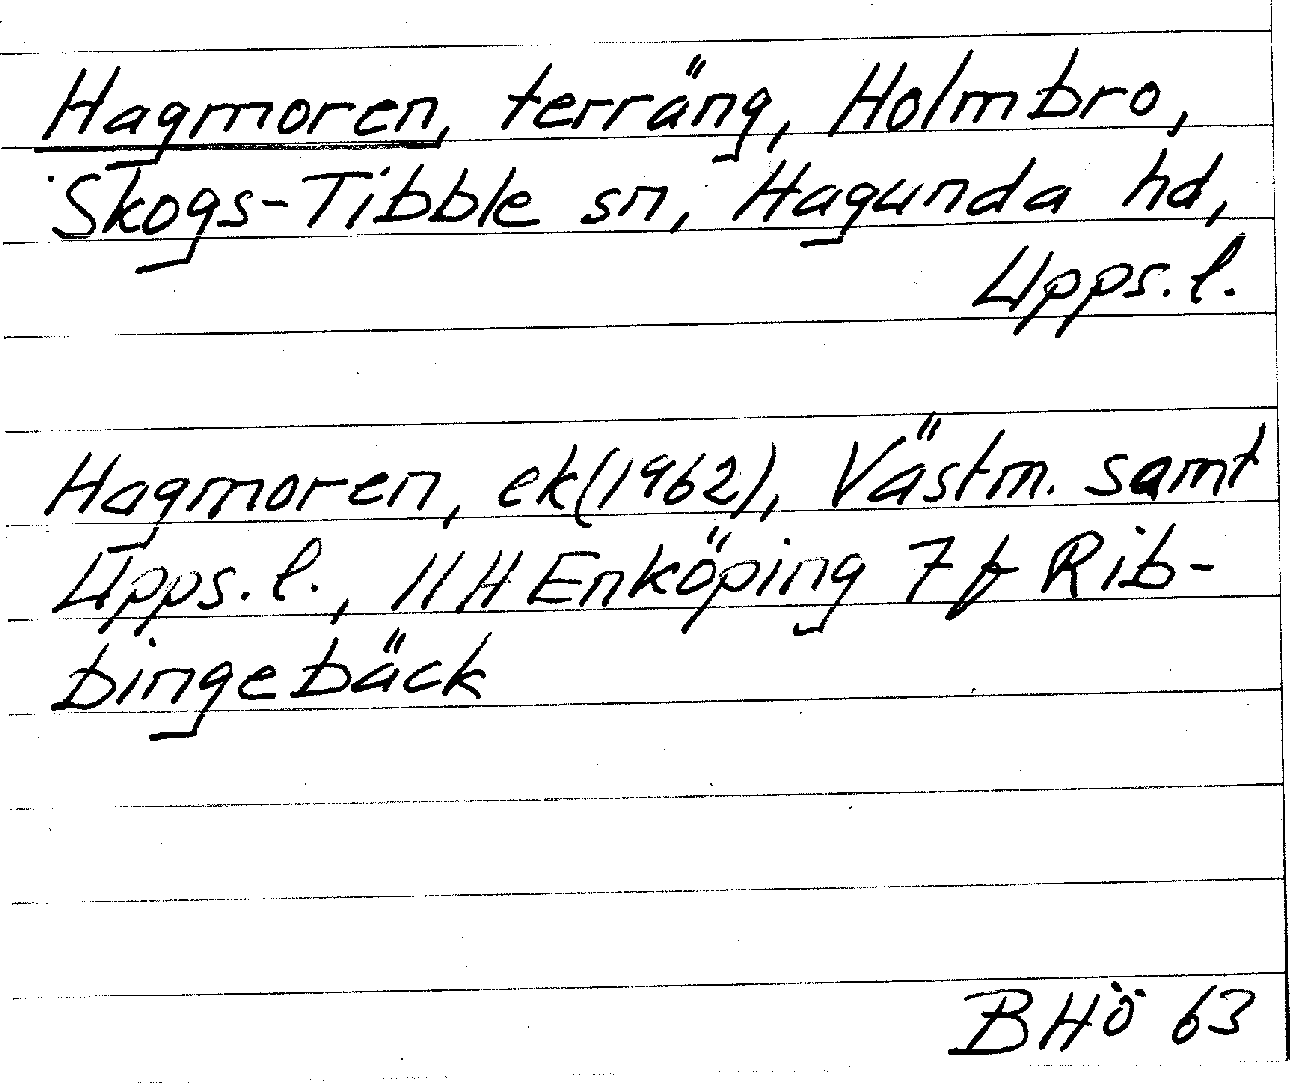 Hagmoren, terräng, Holmbro,
Skogs-Tibble sn, Hagunda hd,
Upps. l.
Hagmoren, ek (1962), Västm. samt
Upps. l., 11 H Enköping 7 f Rib-
bingebäck
BHÖ 63